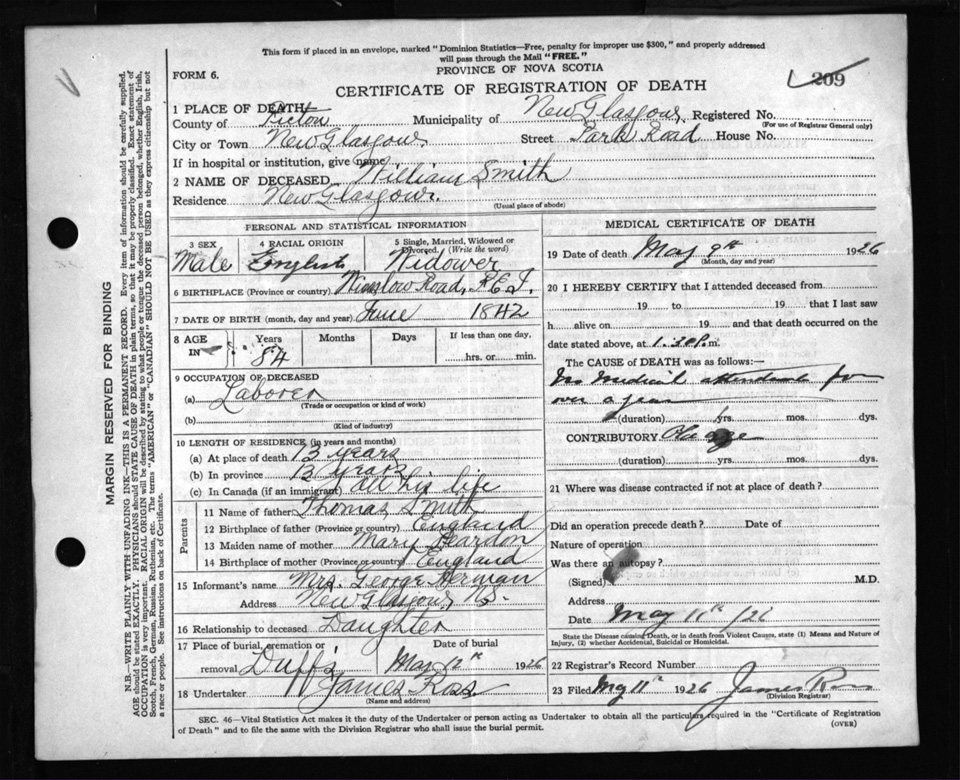 This form if placed in an envelope, marked "Dominion Statistics—Free, penalty for improper use $300," and properly addressed
will pass through the Mail "FREE."
209
FORM 6.
PROVINCE OF NOVA SCOTIA
CERTIFICATE OF REGISTRATION OF DEATH
1 PLACE OF DEATH
County of Pictou Municipality of New Glasgow Registered No.
(For use of Registrar General only)
City or Town New Glasgow Street Park Road House No.
If in hospital or institution, give name
2 NAME OF DECEASED William Smith
Residence New Glasgow.
(Usual place of abode)
PERSONAL AND STATISTICAL INFORMATION
3 SEX 4 RACIAL ORIGIN 5 Single, Married, Widowed or Divorced. (Write the word)
Male English Widower
6 BIRTHPLACE (Province or country) Winslow Road, P.E.I.
7 DATE OF BIRTH (month, day and year) June 1842
8 AGE IN Years Months Days If less than one day,
84 hrs. or min.
9 OCCUPATION OF DECEASED
(a) Laborer
(Trade or occupation or kind of work)
(b)
(Kind of industry)
10 LENGTH OF RESIDENCE (in years and months)
(a) At place of death 13 years
(b) In province 13 years
(c) In Canada (if an immigrant) all his life
Parents
11 Name of father Thomas Smith
12 Birthplace of father (Province or country) England
13 Maiden name of mother Mary Reardon
14 Birthplace of mother (Province or country) England
15 Informant's name Mrs. George Herman
Address New Glasgow, N.S.
16 Relationship to deceased Daughter
17 Place of burial, cremation or removal Duff's Date of burial May 12th 1926
18 Undertaker James Ross
(Name and address)
MEDICAL CERTIFICATE OF DEATH
19 Date of death May 9th 1926
(Month, day and year)
20 I HEREBY CERTIFY that I attended deceased from
19 to 19 that I last saw
h alive on 19 and that death occurred on the
date stated above, at 1.30 P.m.
The CAUSE of DEATH was as follows:—
No Medical attendant for
over a year
(duration) yrs. mos. dys.
CONTRIBUTORY Old age
(duration) yrs. mos. dys.
21 Where was disease contracted if not at place of death?
Did an operation precede death? Date of
Nature of operation
Was there an autopsy?
(Signed) M.D.
Address
Date May 11th /26
State the Disease causing Death, or in death from Violent Causes, state (1) Means and Nature of
Injury, (2) whether Accidental, Suicidal or Homicidal.
22 Registrar's Record Number
23 Filed My 11th 1926 James Ross
(Division Registrar)
SEC. 46—Vital Statistics Act makes it the duty of the Undertaker or person acting as Undertaker to obtain all the particulars required in the "Certificate of Registration
of Death" and to file the same with the Division Registrar who shall issue the burial permit.
(OVER)
MARGIN RESERVED FOR BINDING
N.B.—WRITE PLAINLY WITH UNFADING INK—THIS IS A PERMANENT RECORD. Every item of information should be carefully supplied.
AGE should be stated EXACTLY. PHYSICIANS should STATE CAUSE OF DEATH in plain terms, so that it may be properly classified. Exact statement of
OCCUPATION is very important. RACIAL ORIGIN will be described by stating to what people or tongue the deceased person belonged, whether English, Irish,
Scotch, French, German, Russian, Ruthenian, etc. The terms "AMERICAN" or "CANADIAN" SHOULD NOT BE USED as they express citizenship but not
a race or people. See instructions on back of Certificate.